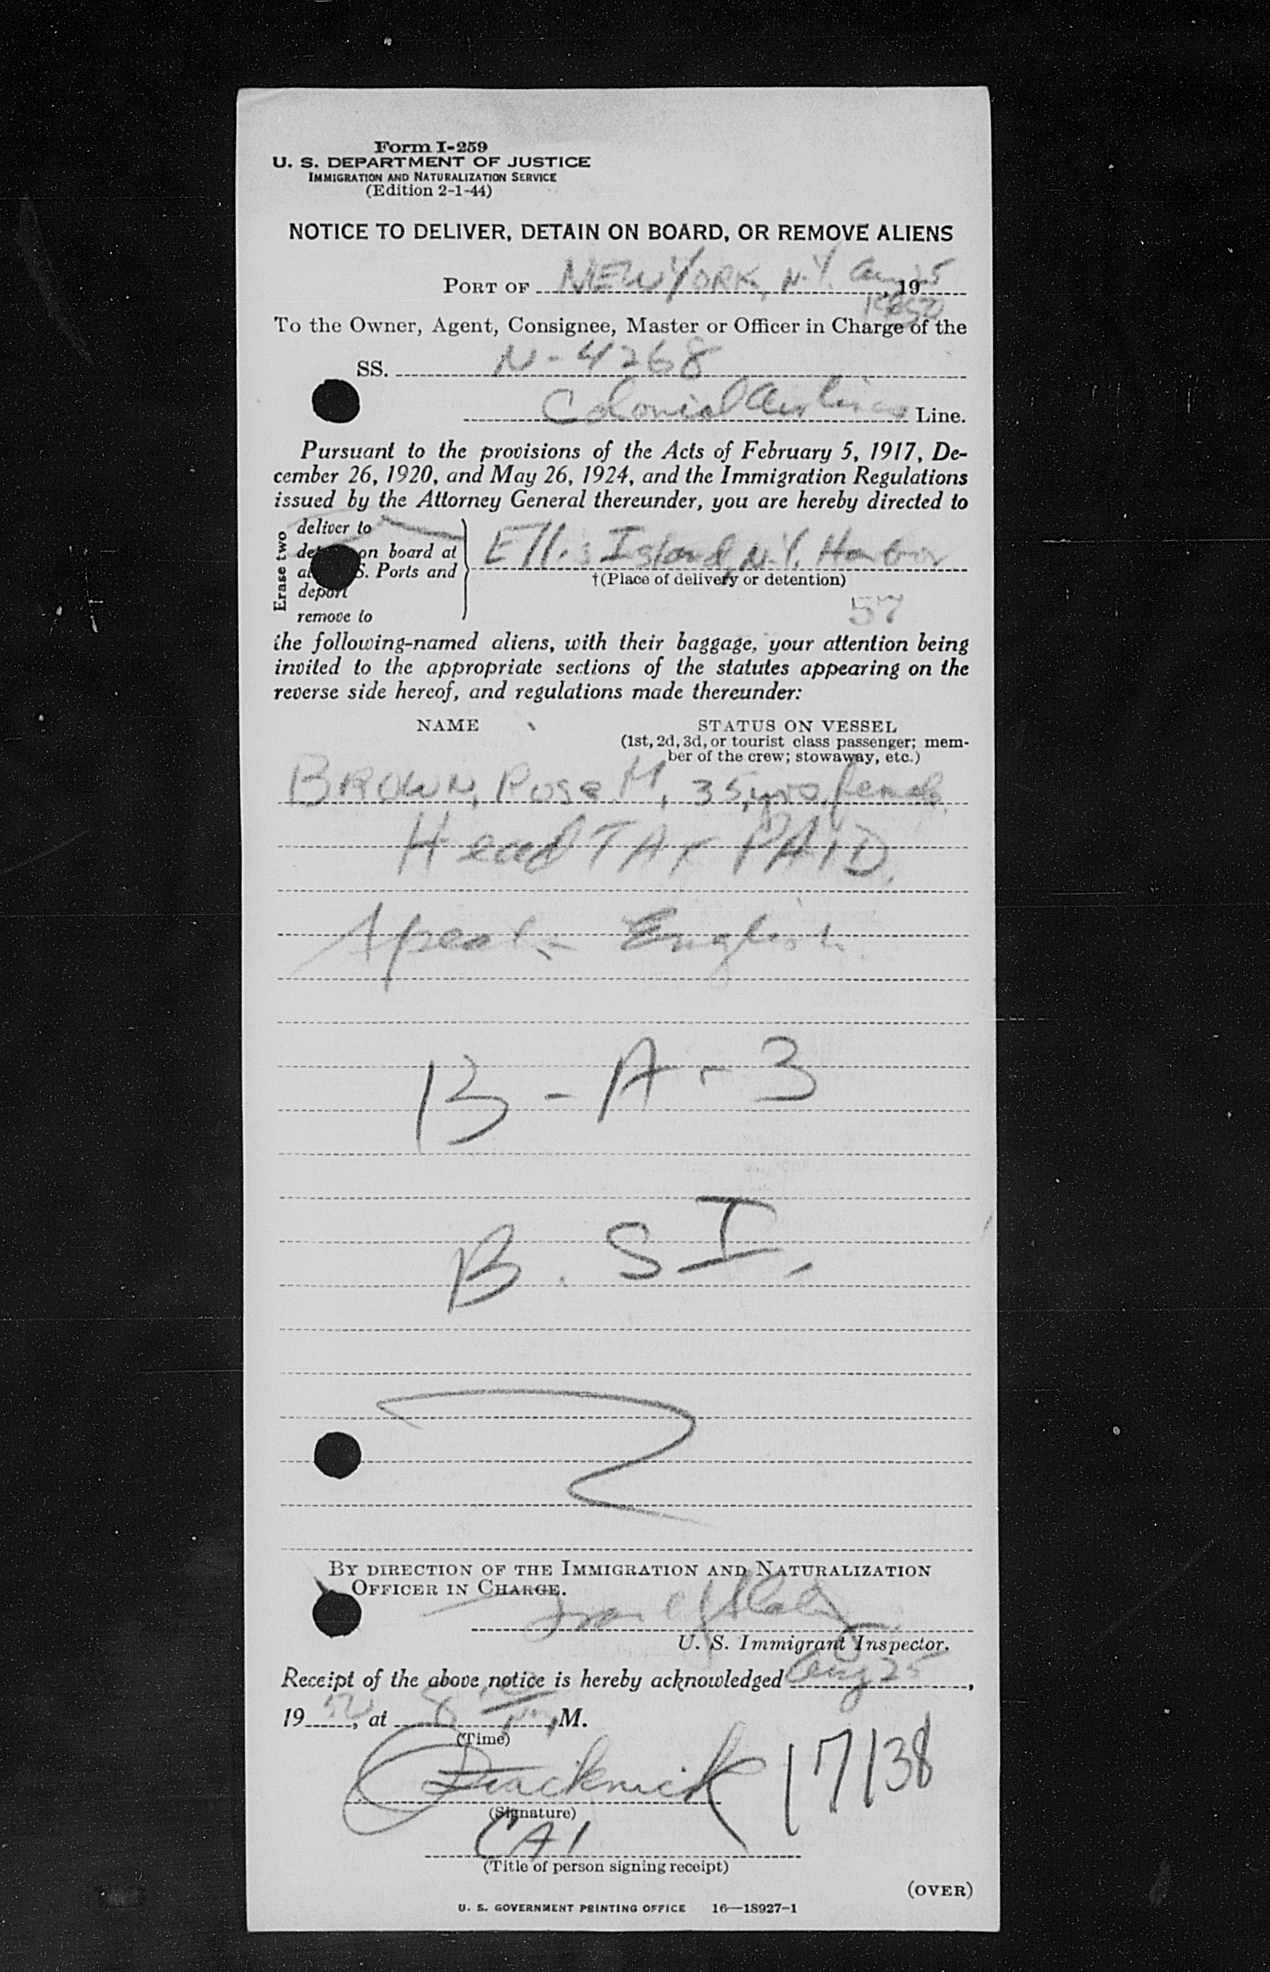 Form I-259
U. S. DEPARTMENT OF JUSTICE
IMMIGRATION AND NATURALIZATION SERVICE
(Edition 2-1-44)
NOTICE TO DELIVER, DETAIN ON BOARD, OR REMOVE ALIENS
PORT OF NEW YORK, N.Y. Aug 25, 19
To the Owner, Agent, Consignee, Master or Officer in Charge of the
SS. N-4268
Colonial Airlines Line.
Pursuant to the provisions of the Acts of February 5, 1917, De-
cember 26, 1920, and May 26, 1924, and the Immigration Regulations
issued by the Attorney General thereunder, you are hereby directed to
Erase two
deliver to
on board at
S. Ports and
deport
remove to
Ellis Island, N.Y. Harbor
†(Place of delivery or detention)
57
the following-named aliens, with their baggage, your attention being
invited to the appropriate sections of the statutes appearing on the
reverse side hereof, and regulations made thereunder:
NAME
STATUS ON VESSEL
(1st, 2d, 3d, or tourist class passenger; mem-
ber of the crew; stowaway, etc.)
BROWN, Rose M, 35 yrs, female
Head TAX PAID.
Speaks English
B-A-3
B. S I.
BY DIRECTION OF THE IMMIGRATION AND NATURALIZATION
OFFICER IN CHARGE.
U. S. Immigrant Inspector.
Receipt of the above notice is hereby acknowledged Aug 25,
19 50, at 8 M.
(Time)
17138
(Signature)
CAI
(Title of person signing receipt)
(OVER)
U. S. GOVERNMENT PRINTING OFFICE 16—18927-1